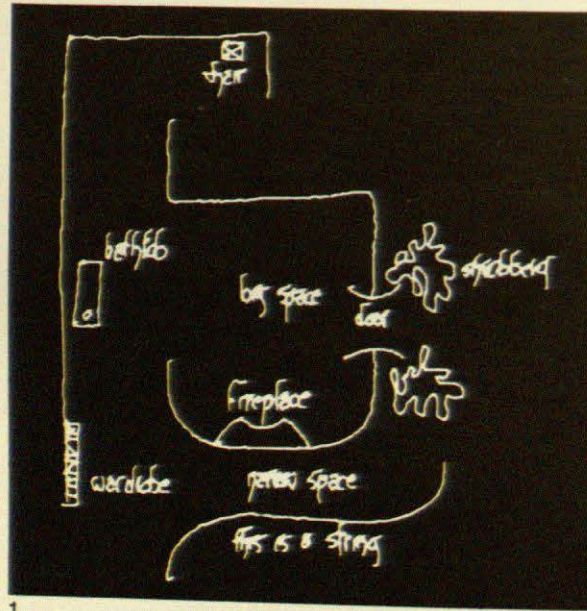 chair
bathtub
big space
door
shrubbery
fireplace
wardrobe
narrow space
this is a string
1